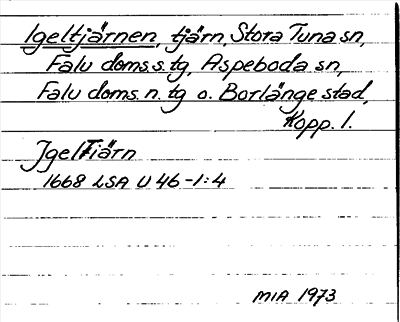 Igeltjärnen, tjärn, Stora Tuna sn,
Falu doms. s. tg, Aspeboda sn,
Falu doms. n. tg o. Borlänge stad,
Kopp. l.
Jgeltiärn
1668 LSA U 46-1:4
MIA 1973